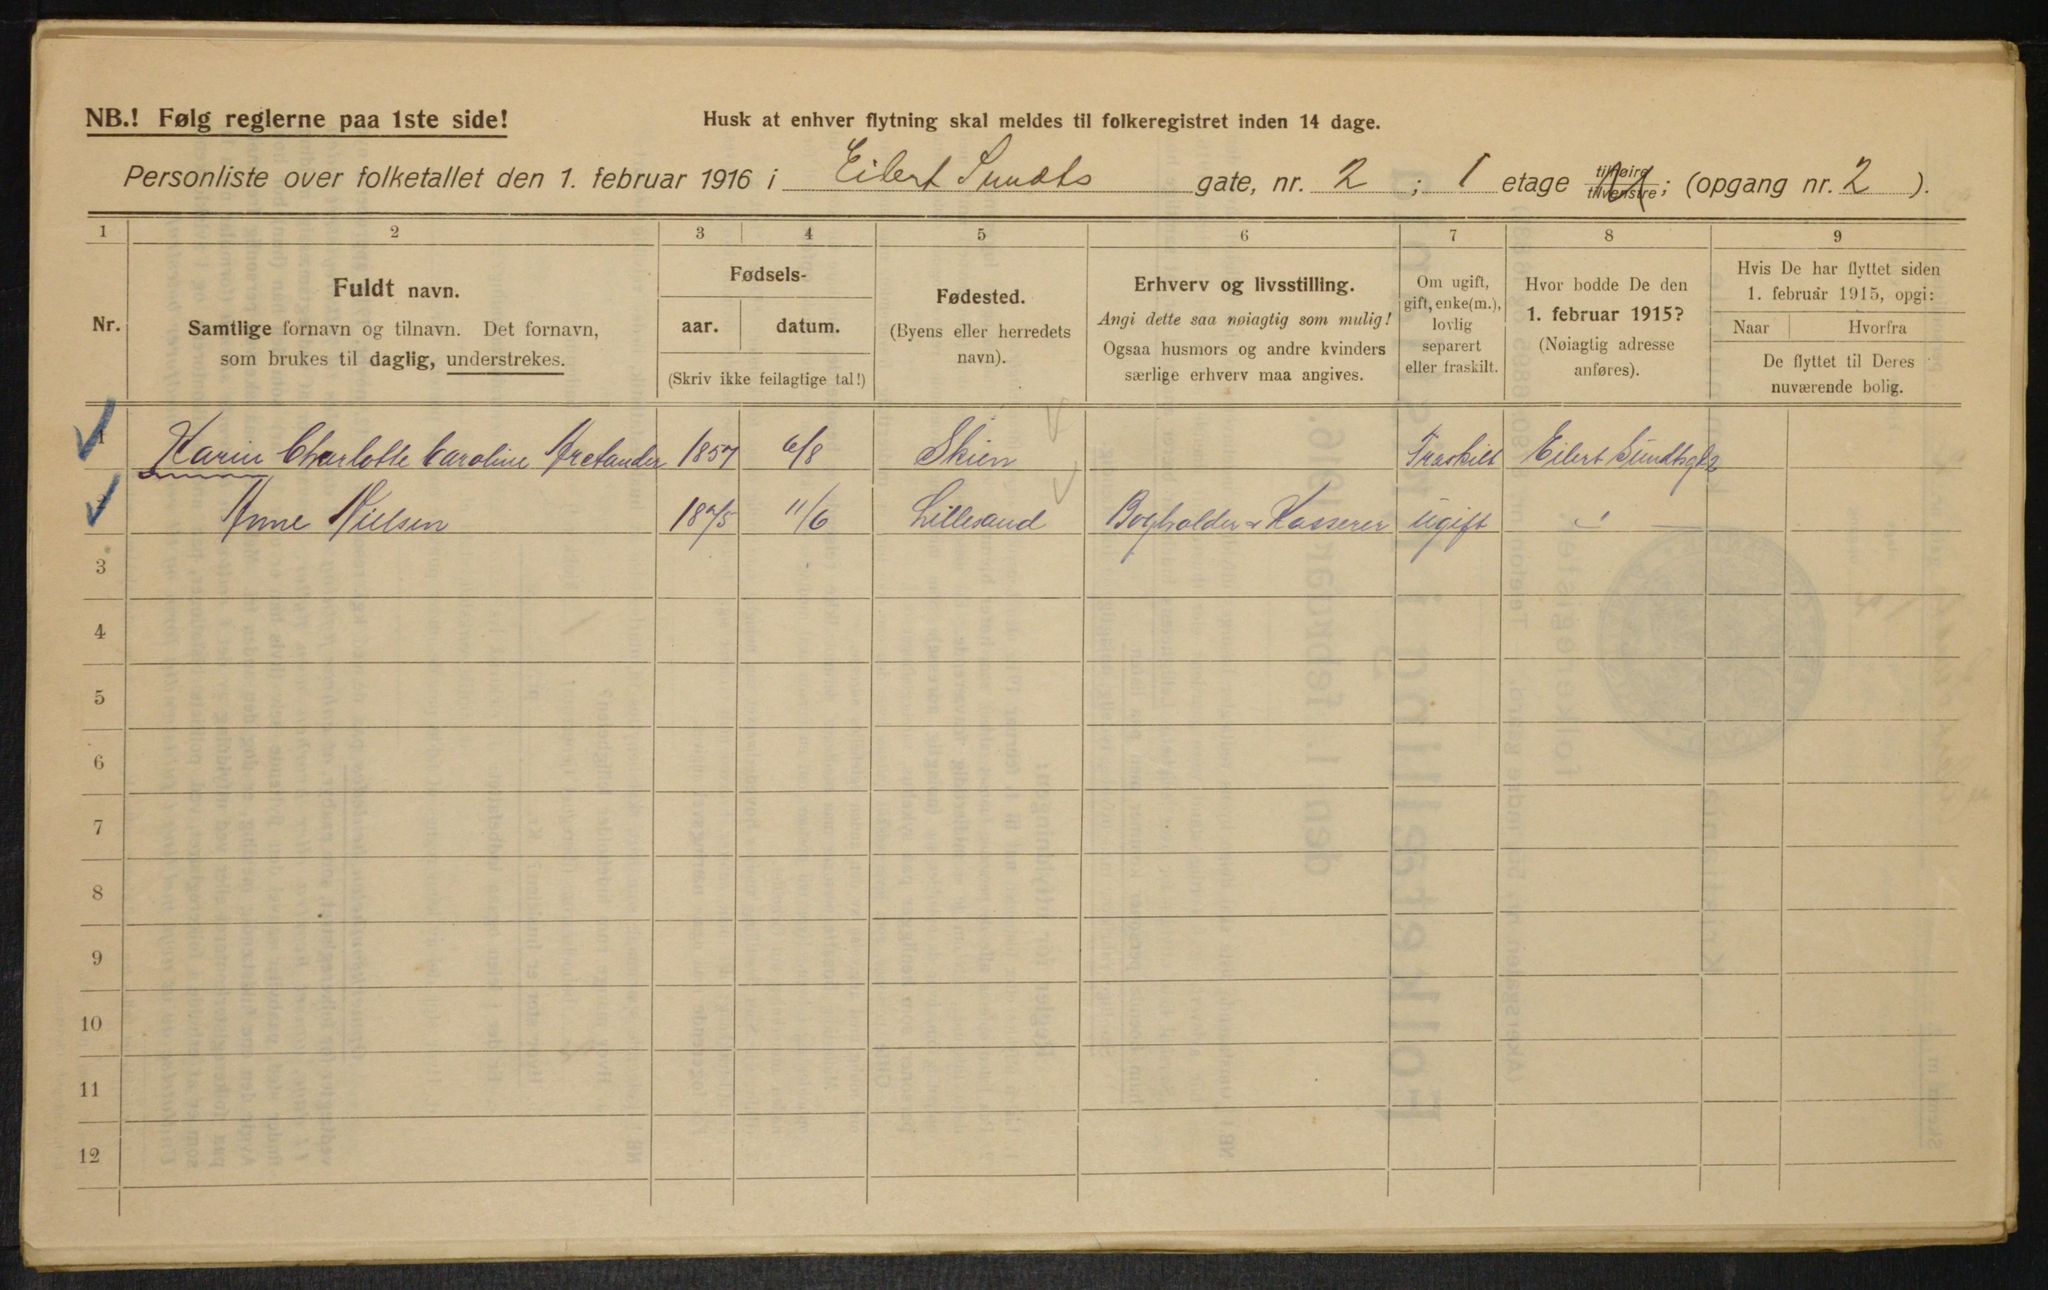 NB.! Følg reglerne paa 1ste side!
Husk at enhver flytning skal meldes til folkeregistret inden 14 dage.
Personliste over folketallet den 1. februar 1916 i Eilert Sundts gate, nr. 2 ; 1 etage tilhøire tilvenstre; (opgang nr. 2 ).
1 2 3 4 5 6 7 8 9
Nr.
Fuldt navn.
Samtlige fornavn og tilnavn. Det fornavn,
som brukes til daglig, understrekes.
Fødsels-
aar. datum.
(Skriv ikke feilagtige tal!)
Fødested.
(Byens eller herredets
navn).
Erhverv og livsstilling.
Angi dette saa nøiagtig som mulig!
Ogsaa husmors og andre kvinders
særlige erhverv maa angives.
Om ugift,
gift, enke(m.),
lovlig
separert
eller fraskilt.
Hvor bodde De den
1. februar 1915?
(Nøiagtig adresse
anføres).
Hvis De har flyttet siden
1. februar 1915, opgi:
Naar Hvorfra
De flyttet til Deres
nuværende bolig.
1 Karin Charlotte Caroline Arctander 1857 6/8 Skien Fraskilt Eilert Sundtsgt 2
2 Anne Nielsen 1875 11/6 Lillesand Bogholder & Kasserer ugift — " —
3
4
5
6
7
8
9
10
11
12